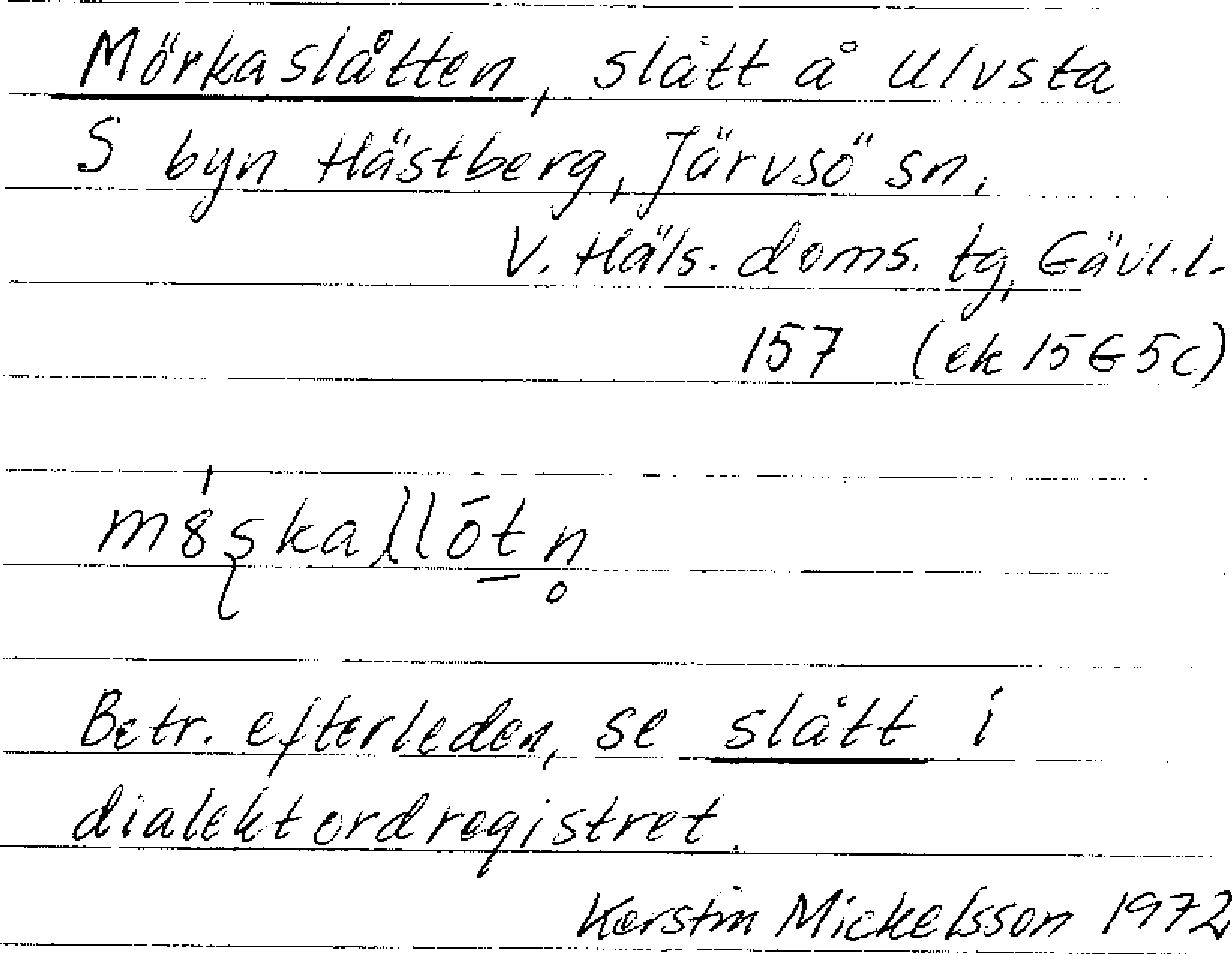 Mörkaslåtten, slått å Ulvsta
S byn Hästberg, Järvsö sn,
V. Häls. doms. tg, Gävl.l.
157 (ek 15G5c)
Betr. efterleden, se slått i
dialektordregistret.
Kerstin Mickelsson 1972